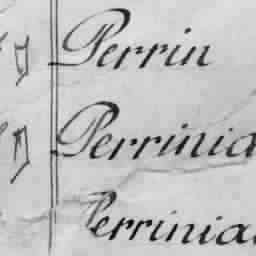 Perrin
Perrinia
Perrinia